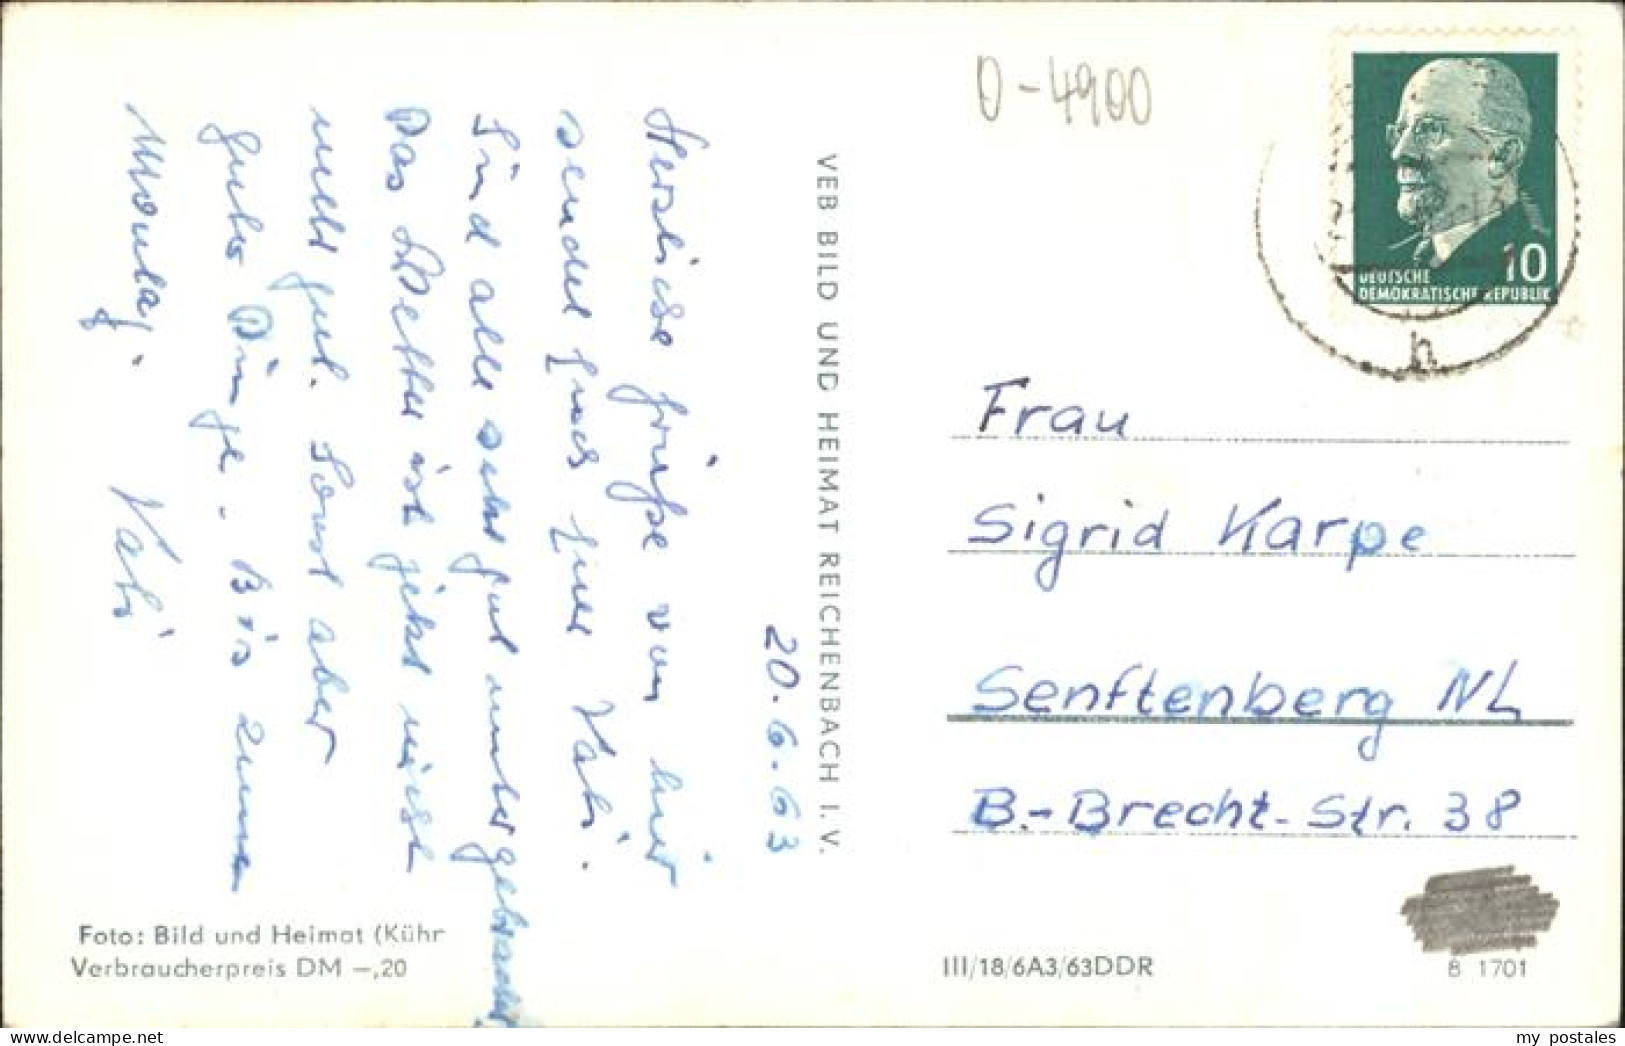 D-4900
DEUTSCHE
DEMOKRATISCHE REPUBLIK
10
h
20.6.63
Herzliche Grüße von hier
sendet Euch Eure Kati.
Sind alle sehr gut untergebracht.
Das Wetter ist jetzt nicht
mehr gut. Sonst aber
guter Dinge. Bis zum
Montag.
Kati
VEB BILD UND HEIMAT REICHENBACH I. V.
Frau
Sigrid Karpe
Senftenberg NL
B.-Brecht-Str. 38
Foto: Bild und Heimat (Kühr
Verbraucherpreis DM –,20
III/18/6A3/63DDR
8 1701
my postales